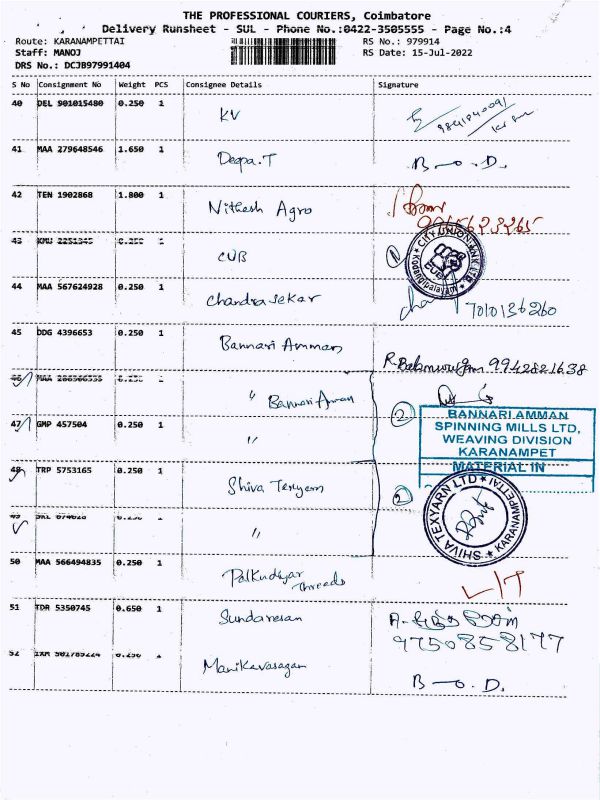 THE PROFESSIONAL COURIERS, Coimbatore
Delivery Runsheet - SUL - Phone No.:0422-3505555 - Page No.:4
Route: KARANAMPETTAI RS No.: 979914
Staff: MANOJ RS Date: 15-Jul-2022
DRS No.: DCJB97991404
S No Consignment No Weight PCS Consignee Details Signature
40 DEL 901015480 0.250 1 KV
41 MAA 279648546 1.650 1 Deepa.T B-O.D.
42 TEN 1902868 1.800 1 Nithesh Agro
43 KMU 2251345 0.250 1 CUB 1 CITY UNION BANK LTD CUB
44 MAA 567624928 0.250 1 Chandrasekar 7010136260
45 DDG 4396653 0.250 1 Bannari Amman R.Balamurugan 9942821638
46 MAA 0.250 1 " Bannari Aman
47 GMP 457504 0.250 1 " 2 BANNARI AMMAN
SPINNING MILLS LTD,
WEAVING DIVISION
KARANAMPET
MATERIAL IN
48 TRP 5753165 0.250 1 Shiva Texyarn 2 SHIVA TEXYARN LTD KARANAMPETTAI
49 SKL 674628 0.250 1 "
50 MAA 566494835 0.250 1 Threads
51 TDR 5350745 0.650 1 Sundaresan 9750858177
52 IXM 901789224 0.250 1 Manikavasagam B-O.D.